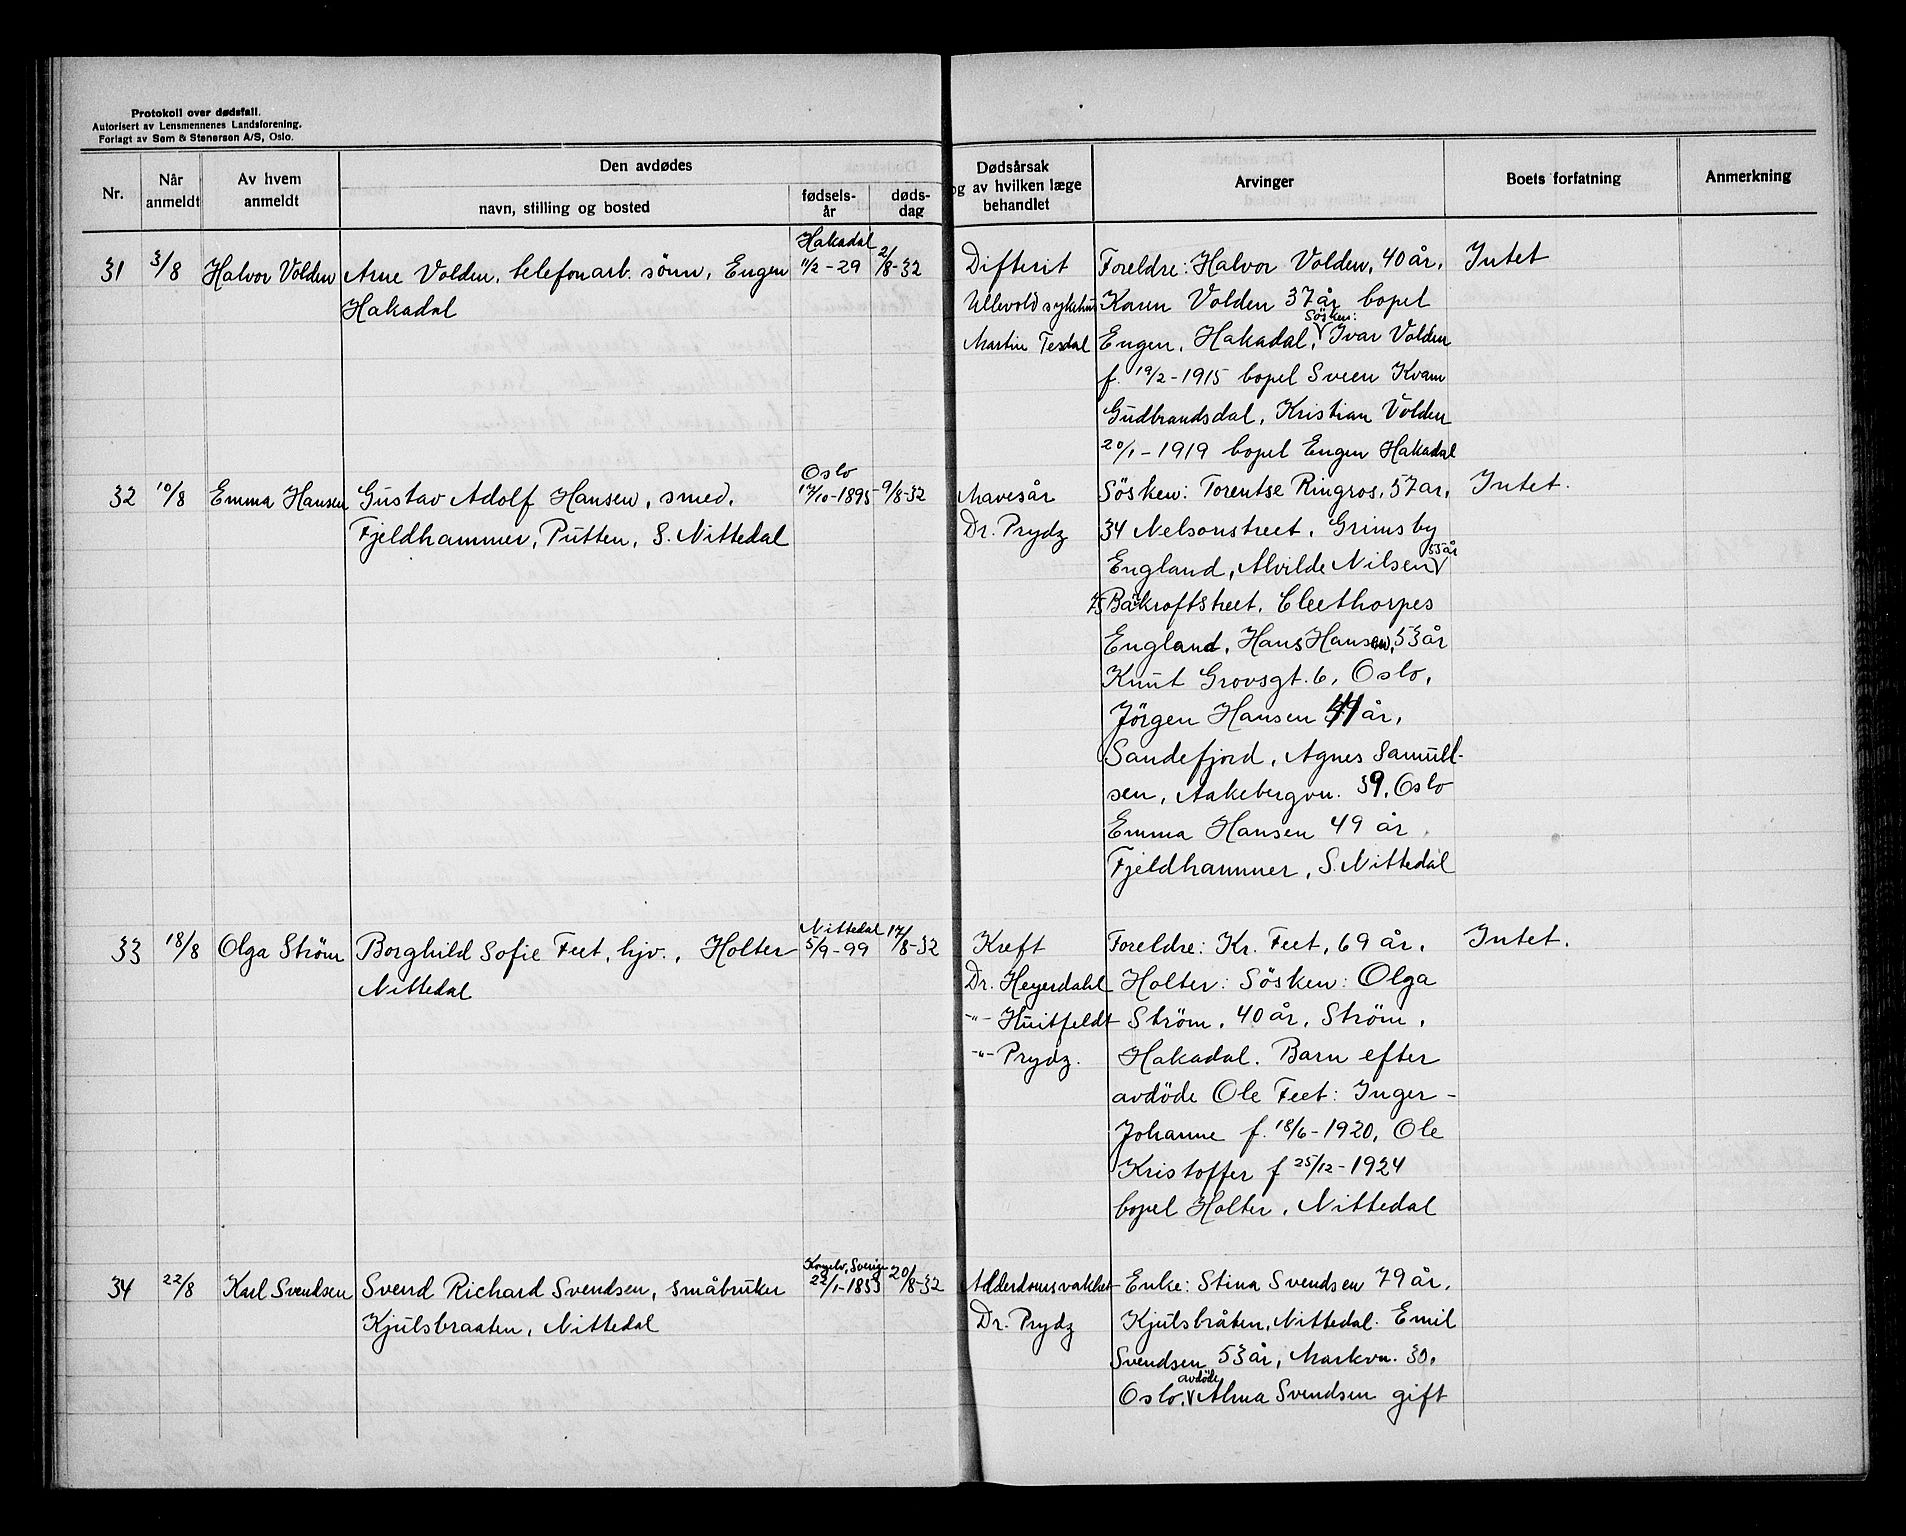 Protokoll over dødsfall.
Autorisert av Lensmennenes Landsforening.
Forlagt av Sem & Stenersen A/S, Oslo.
Nr.
Når anmeldt
Av hvem anmeldt
Den avdødes
navn, stilling og bosted
fødsels-år
døds-dag
Dødsårsak
og av hvilken læge
behandlet
Arvinger
Boets forfatning
Anmerkning
31 3/8 Halvor Volden
Arne Volden, telefonarb. sønn, Engen
Hakadal
Hakadal
11/2-29 2/8-32
Difterit
Ullevold sykehus
Martin Tesdal
Foreldre: Halvor Volden, 40 år,
Karen Volden 37 år bopel
Engen, Hakadal, Søsken: Ivar Volden
f. 19/2-1915 bopel Sveen Kvam
Gudbrandsdal, Kristian Volden
20/1-1919 bopel Engen Hakadal
Intet
32 10/8 Emma Hansen
Gustav Adolf Hansen, smed.
Fjeldhammer, Putten, S. Nittedal
Oslo
/10-1895 9/8-32
Mavesår
Dr. Prydz
Søsken: Torentse Ringros, 57 ar,
34 Nelsonstreet, Grimsby
England, Alvilde Nilsen 55 år
75 Bakroftstreet, Cleethorpes
England, Hans Hansen, 53 år
Knut Grovsgt. 6, Oslo,
Jörgen Hansen 41 år,
Sandefjord, Agnes Samuel-
sen, Aakebergvn. 39, Oslo
Emma Hansen 49 år,
Fjeldhammer, S. Nittedal
Intet.
33 18/8 Olga Strøm
Borghild Sofie Feet, hjv., Holter
Nittedal
Nittedal
5/9-99 17/8-32
Kreft
Dr. Heyerdahl
-"- Huitfeldt
-"- Prydz.
Foreldre: Kr. Feet, 69 år,
Holter: Søsken: Olga
Strøm, 40 år, Strøm,
Hakadal. Barn efter
avdöde Ole Feet: Inger-
Johanne f. 18/6-1920, Ole
Kristoffer f 25/12-1924
bopel Holter, Nittedal
Intet.
34 22/8 Karl Svendsen
Svend Richard Svendsen, småbruker
Kjulsbraaten, Nittedal
Sverige
22/1-1853 20/8-32
Alderdomsvakhet
Dr. Prydz
Enke: Stina Svendsen 79 år,
Kjulsbråten, Nittedal. Emil
Svendsen 53 år, Markvn. 30,
Oslo, avdöde Alma Svendsen gift